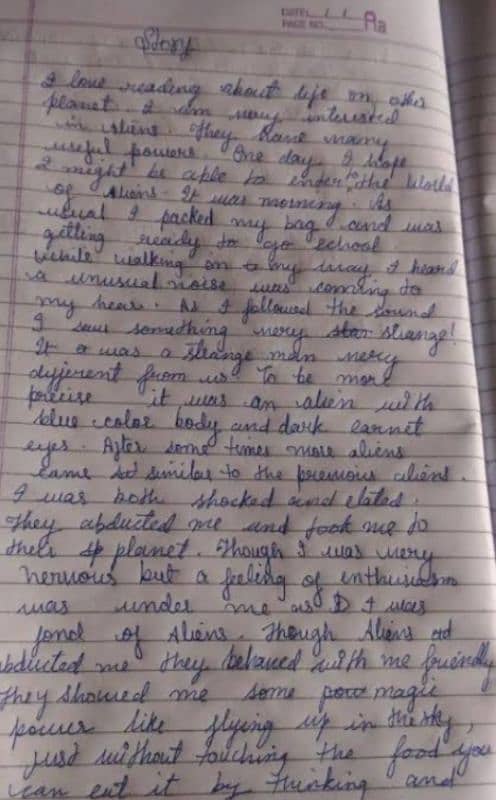 DATE: / /
PAGE NO.
Aa
Story
I love reading about life on other
planet. I am very interested
in Aliens. They have many
useful powers. One day, I hope
I might be able to enter to the World
of Aliens. It was morning. As
usual I packed my bag and was
getting ready to go school
while walking on my way, I heard
a unusual noise was coming to
my hear. As I followed the sound
I saw something very strange!
It was a strange man very
different from us. To be more
precise it was an alien with
blue color body and dark
eyes. After some times more aliens
came similar to the previous aliens.
I was both shocked and elated.
They abducted me and took me to
their planet. Though I was very
nervous but a feeling of enthusiasm
was under me as I was
fond of Aliens. Though Aliens
abducted me they behaved with me friendly
They showed me some magic
power like flying up in the sky,
just without touching the food you
can eat it by thinking and